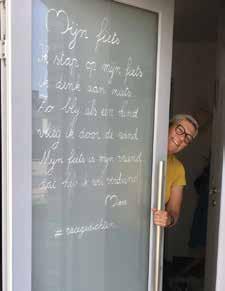 Mijn fiets
Ik stap op mijn fiets
ik denk aan niets
Zo blij als een kind
vlieg ik door de wind
Mijn fiets is mijn vriend
dat heb ik wel verdiend
#raamgedichten